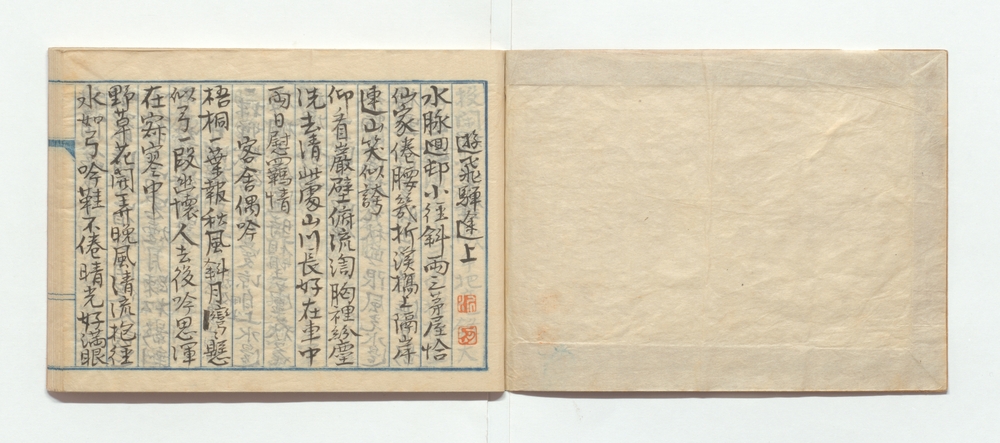 遊飛騨途上
水脉廻邨小径斜両三茅屋恰
仙家倦腰幾折渓橋上隔岸
連山笑似誇
仰看巌壁俯流淘胸裡紛塵
洗去清此處山川長好在車中
両日慰羈情
客舎偶吟
梧桐一葉報秋風斜月彎々懸
似弓一段幽懐人去後吟思渾
在寂寥中
野草花開弄晩風清流抱径
水如弓吟鞋不倦晴光好満眼